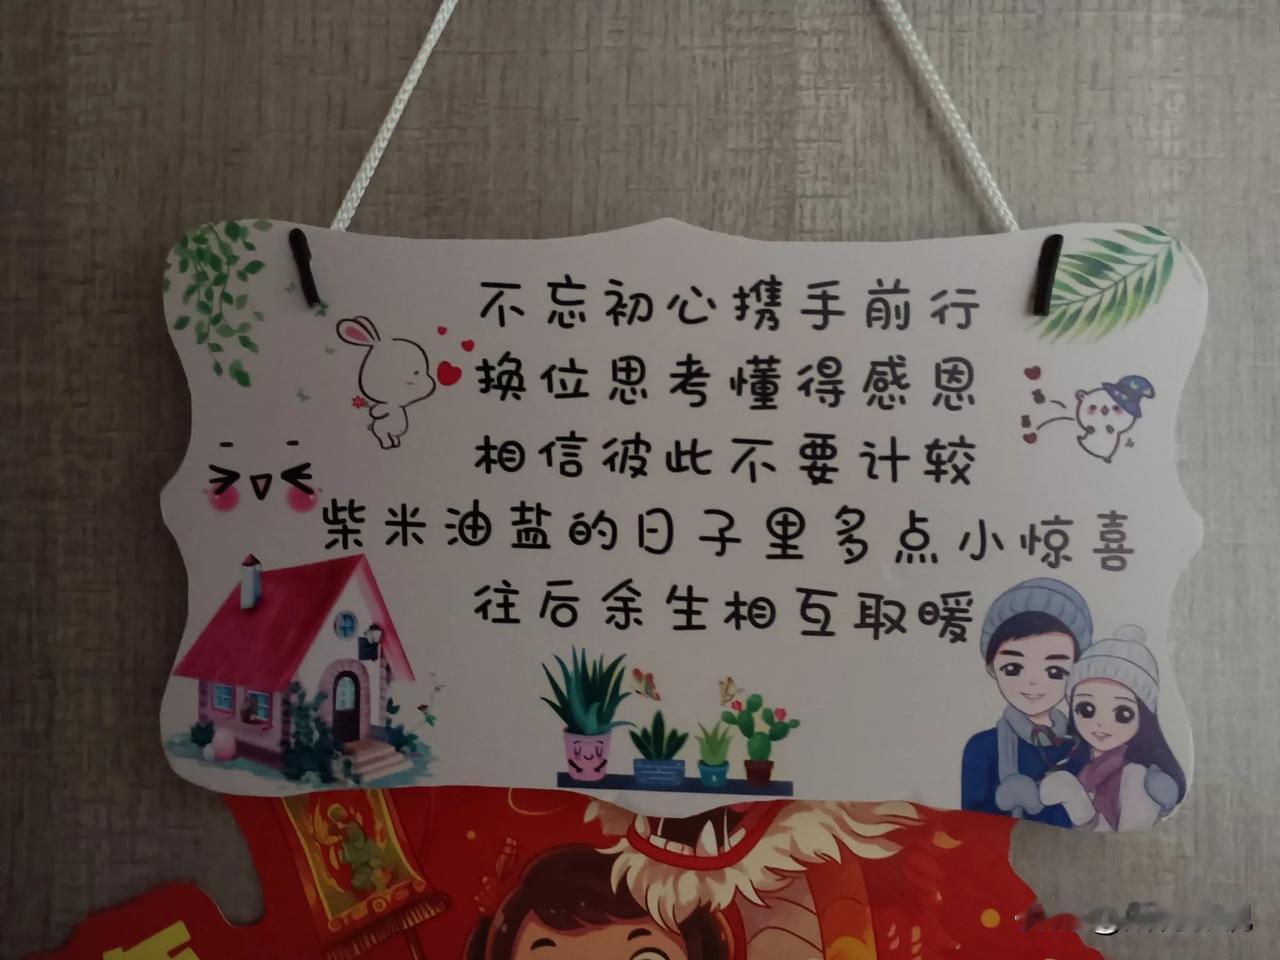 不忘初心携手前行
换位思考懂得感恩
相信彼此不要计较
柴米油盐的日子里多点小惊喜
往后余生相互取暖